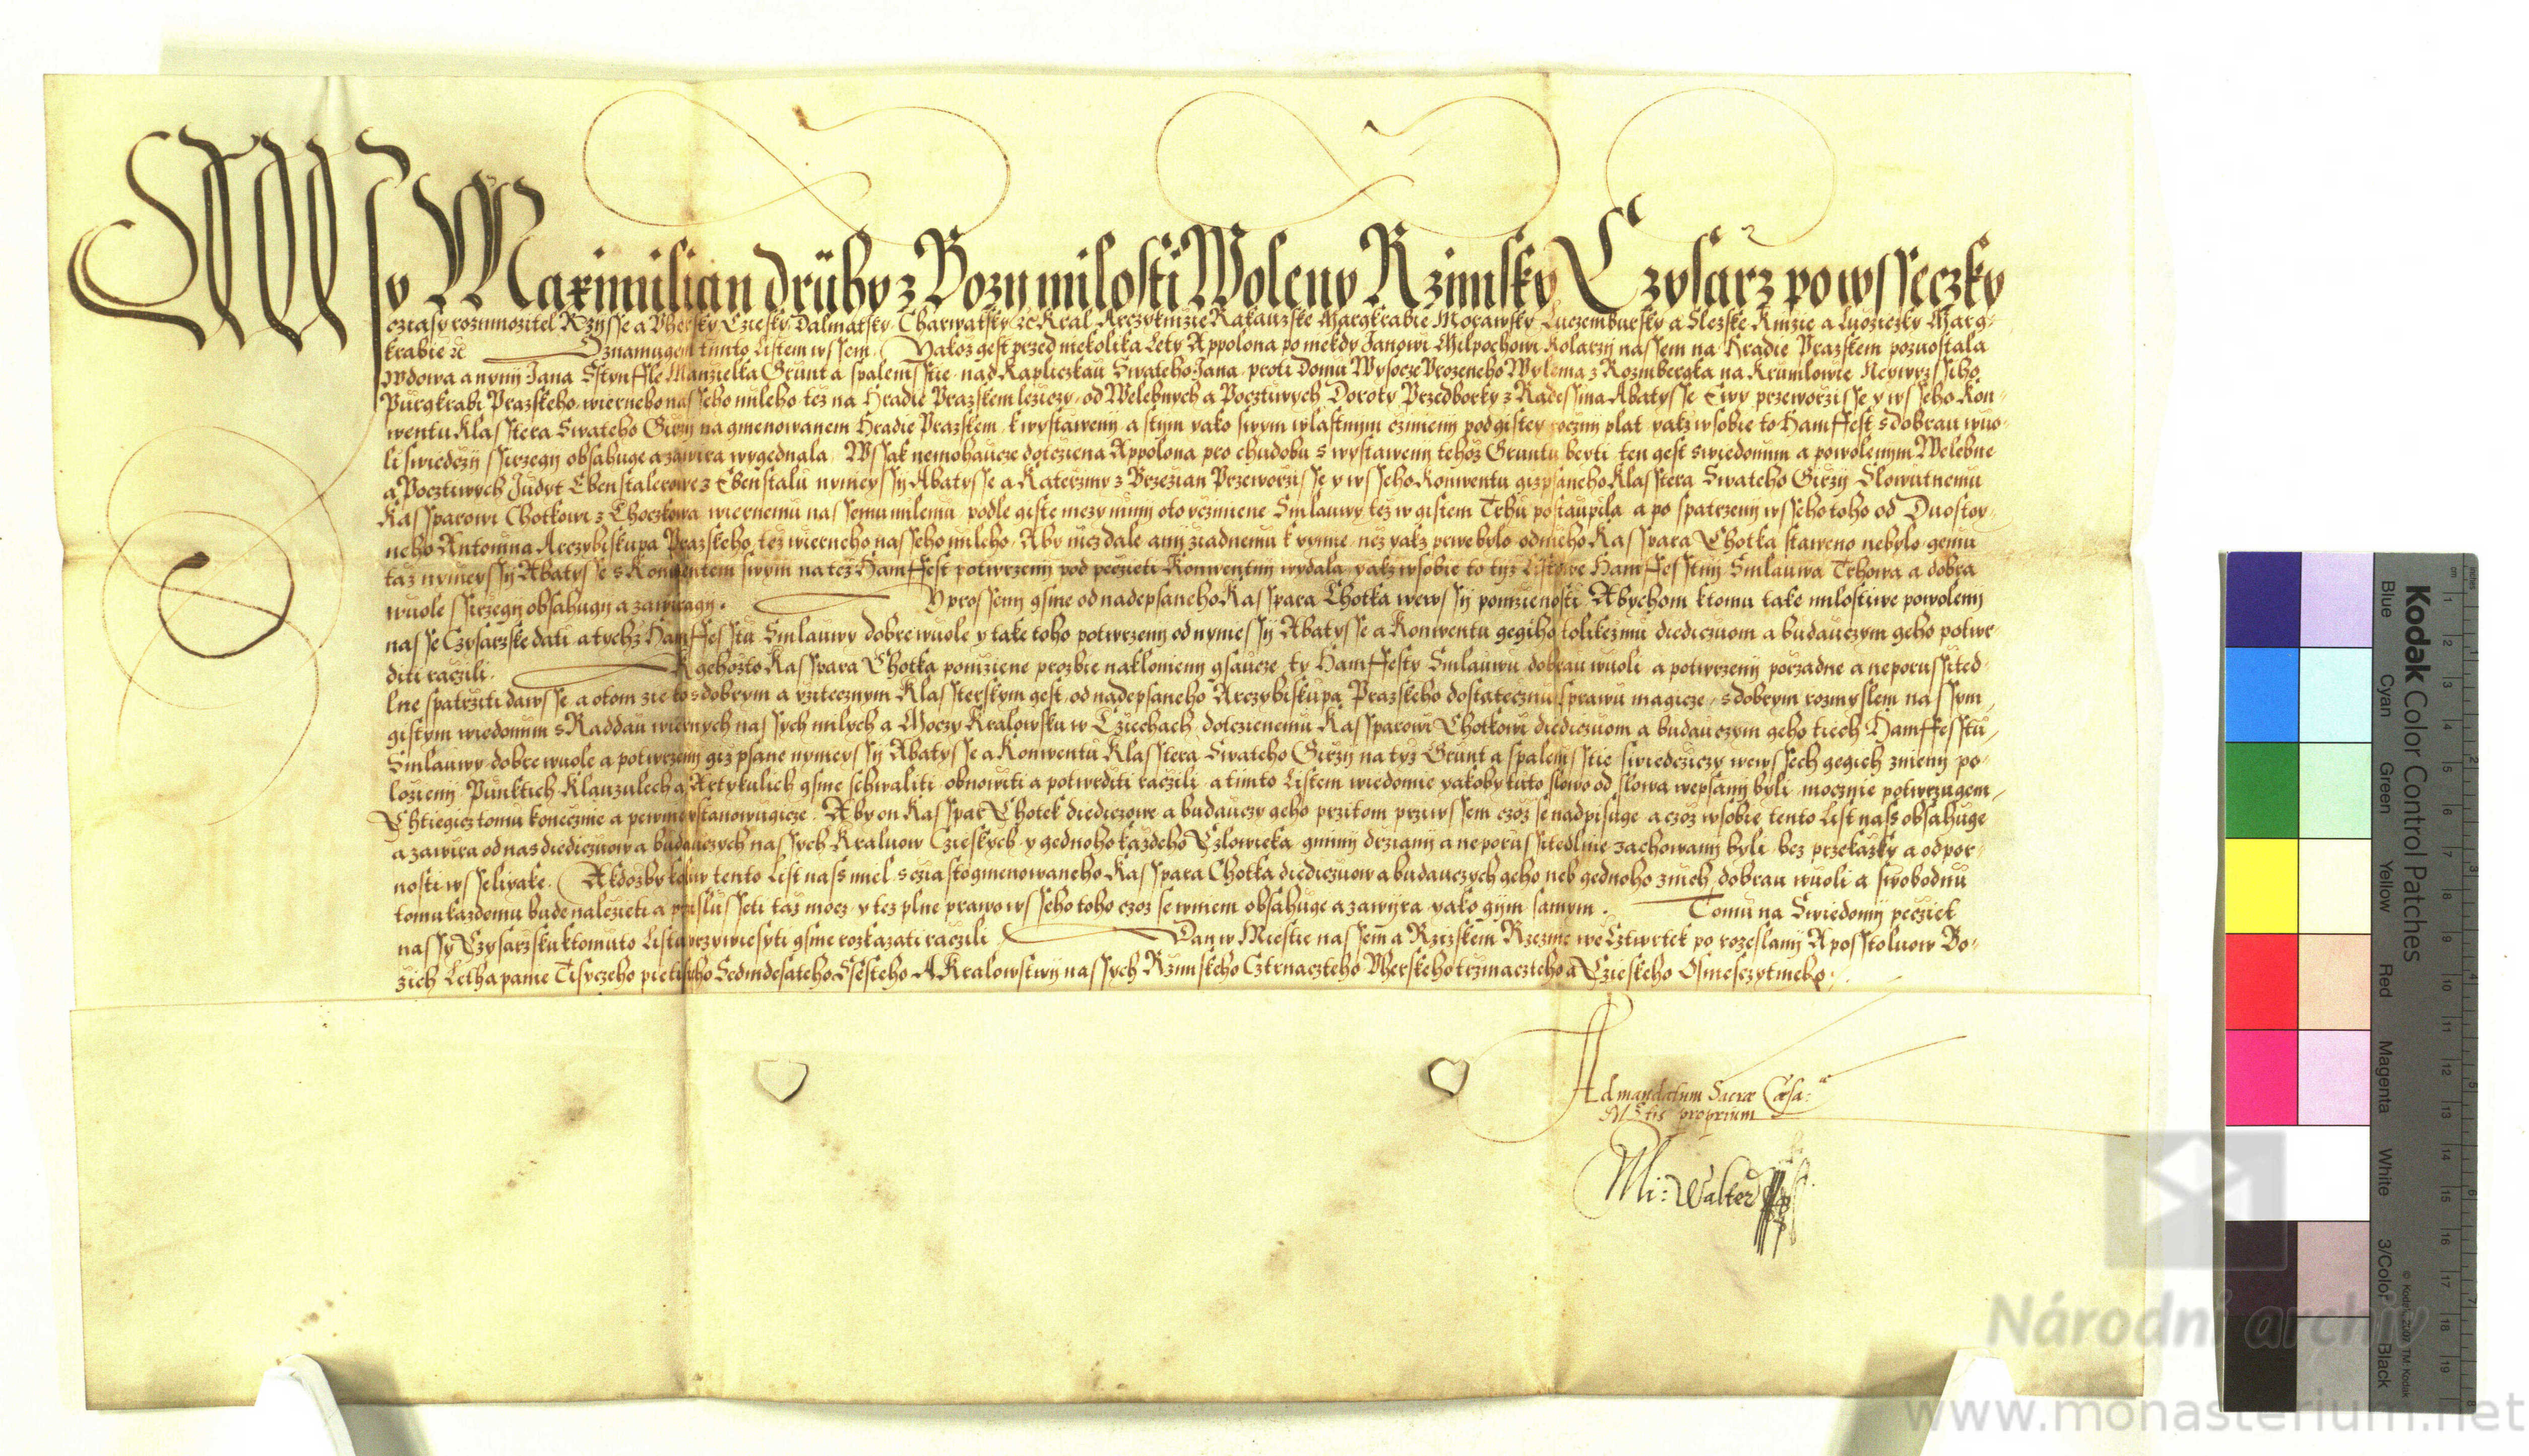 My Maximilian druhy z Bozy milosti Woleny Rzimsky Czysarz po wsseczky
cziasy rozmnozitel Rzysse a Uhersky Cziesky Dalmatsky Charwatsky ꝛc Kral Arczyknizie Rakauzske Margkrabie Morawsky Luczembursky a Slezske Knizie a Luziczky Marg-
krabie ꝛc Oznamugem timto Listem wssem. Yakoz gest przed niekolika Lety Appolona po niekdy Janowi Milpochowi Kolarzy nassem na Hradie Prazskem pozuostala
wdowa a nyny Jana Manzielka Grunt a spalenisstie nad Kapliczkau Swateho Jana proti domu Wysocze Urozeneho Wylema z Rozmbergka na Krumlowie Neywyzssiho
Purgkrabi Prazskeho wierneho nasseho mileho tez na Hradie Prazskem lezyczy od Welebnych a Pocztiwych Doroty Przedborky z Radessina Abatysse Ewy przeworzisse y wsseho Kon-
wentu Klasstera Swateho Girzy na gmenowanem Hradie Prazskem k wystaweny a stym yako swym wlastnym czinieny pod gistey roczny plat yakz w sobie to Hamffest s dobrau wuo-
li swiedczy ssirzegy obsahuge a zawira wygednala Wssak nemohaucze dotcziena Appolona pro chudobu s wystaweny tehoz Gruntu beyti ten gest s wiedomim a powolenym Welebne
a Pocztiwych Judyt Ebenstalerowe z Ebenstalu nyneyssy Abatysse a Katerziny z Brzezian Przeworzisse y wsseho Konwentu gizpsaneho Klasstera Swateho Girzy Slowutnemu
Kassparowi Chotkowi z Choczkowa wiernemu nassemu milemu podle giste mezy nimy o to ucziniene Smlauwy tez w gistem Trhu postaupila a po spatrzeny wsseho toho od Duostoy-
neho Antonina Arczybiskupa Prazskeho tez wierneho nasseho mileho Aby nicz dale any ziadnemu k uyme nez yakz prwe bylo od nieho Kasspara Chotka staweno nebylo gemu
taz nyneyssy Abatysse s Konwentem swym na tez Hamffest potwrzeny pod peczieti Konwentny wydala yakz w sobie to tyz Listowe Hamffesstny Smlauwa Trhowa a dobra
wuole ssirzegy obsahugy a zawiragy. Y prosseny gsme od nadepsaneho Kasspara Chotka wewssy ponizienosti Abychom k tomu take milostiwe powoleny
nasse Czysarzske dati a tychz Hamffesstu Smlauwy dobre wuole y take toho potwrzeny od nynieyssy Abatysse a Konwentu gegiho tolikez mu diedicuom a budauczym geho potwr-
diti raczili. K gehozto Kasspara Chotka ponizene prozbie naklonieny gsaucze ty Hamffesty Smlauwu dobrau wuoli a potwrzeny porzadne a neporussited-
lne spatrziti dawsse a o tom zie to s dobrym a uzitecznym Klassterskym gest od nadepsaneho Arczybiskupa Prazskeho dostatecznu sprawu magicze s dobrym rozmyslem nassym
gistym wiedomim s Raddau wiernych nassych milych a Moczy Kralowsku w Cziechach dotczienemu Kassparowi Chotkowi diedicuom a budauczym geho tiech Hamffesstu
Smlauwy dobre wuole a potwrzeny gizpsane nyneyssy Abatysse a Konwentu Klasstera Swateho Girzy na tyz Grunt a spalenisstie swiedcziczy wewssech gegich znieny po-
lozieny Punktich Klauzulech a Artykulich gsme schwaliti obnowiti a potwrditi raczili a timto Listem wiedomie yakoby tuto slowo od slowa wepsany byli mocznie potwrzugem
Chtiegicz tomu koneczne a pewnie ustanowugicze. Aby on Kasspar Chotek diediczowe a budauczy geho przitom przi wssem czoz se nadpisuge a czoz w sobie tento List nass obsahuge
a zawira od nas diedicuow a budauczych nassych Kraluow Czieskych y gednoho kazdeho Czlowieka gmini drziany a neporussitedlnie zachowany byli bez przekazky a odpor-
nosti wsseliyake. A kdozby koliw tento List nass miel s czasto gmenowaneho Kasspara Chotka diedicuow a budauczych geho neb gednoho z nich dobrau wuoli a swobodnu
tomu kazdemu bude nalezieti a przislusseti taz mocz y tez plne prawo wsseho toho czoz se w niem obsahuge a zawyra yako gym samym. Tomu na Swiedomy peczet
nassy Czysarzsku k tomuto Listu przywiesyti gsme rozkazati raczili Dan w Miestie nassem a Rzizskem Rzezne we Cztwrtek po rozeslany Aposstoluow Bo-
zich Letha panie Tisyczeho pietisteho Sedmdesateho Ssesteho A Kralowstwy nassych Rzimskeho Cztrnaczteho Uherskeho trzinaczteho a Czieskeho Osmeczytmeho.
Ad mandatum Sacrae Caesae
Mtis proprium
Mi: Walter
Kodak Color Control Patches
Blue Cyan Green Yellow Red Magenta White 3/Color Black
© Kodak, 2007 TM: Kodak
Národní archiv
www.monasterium.net